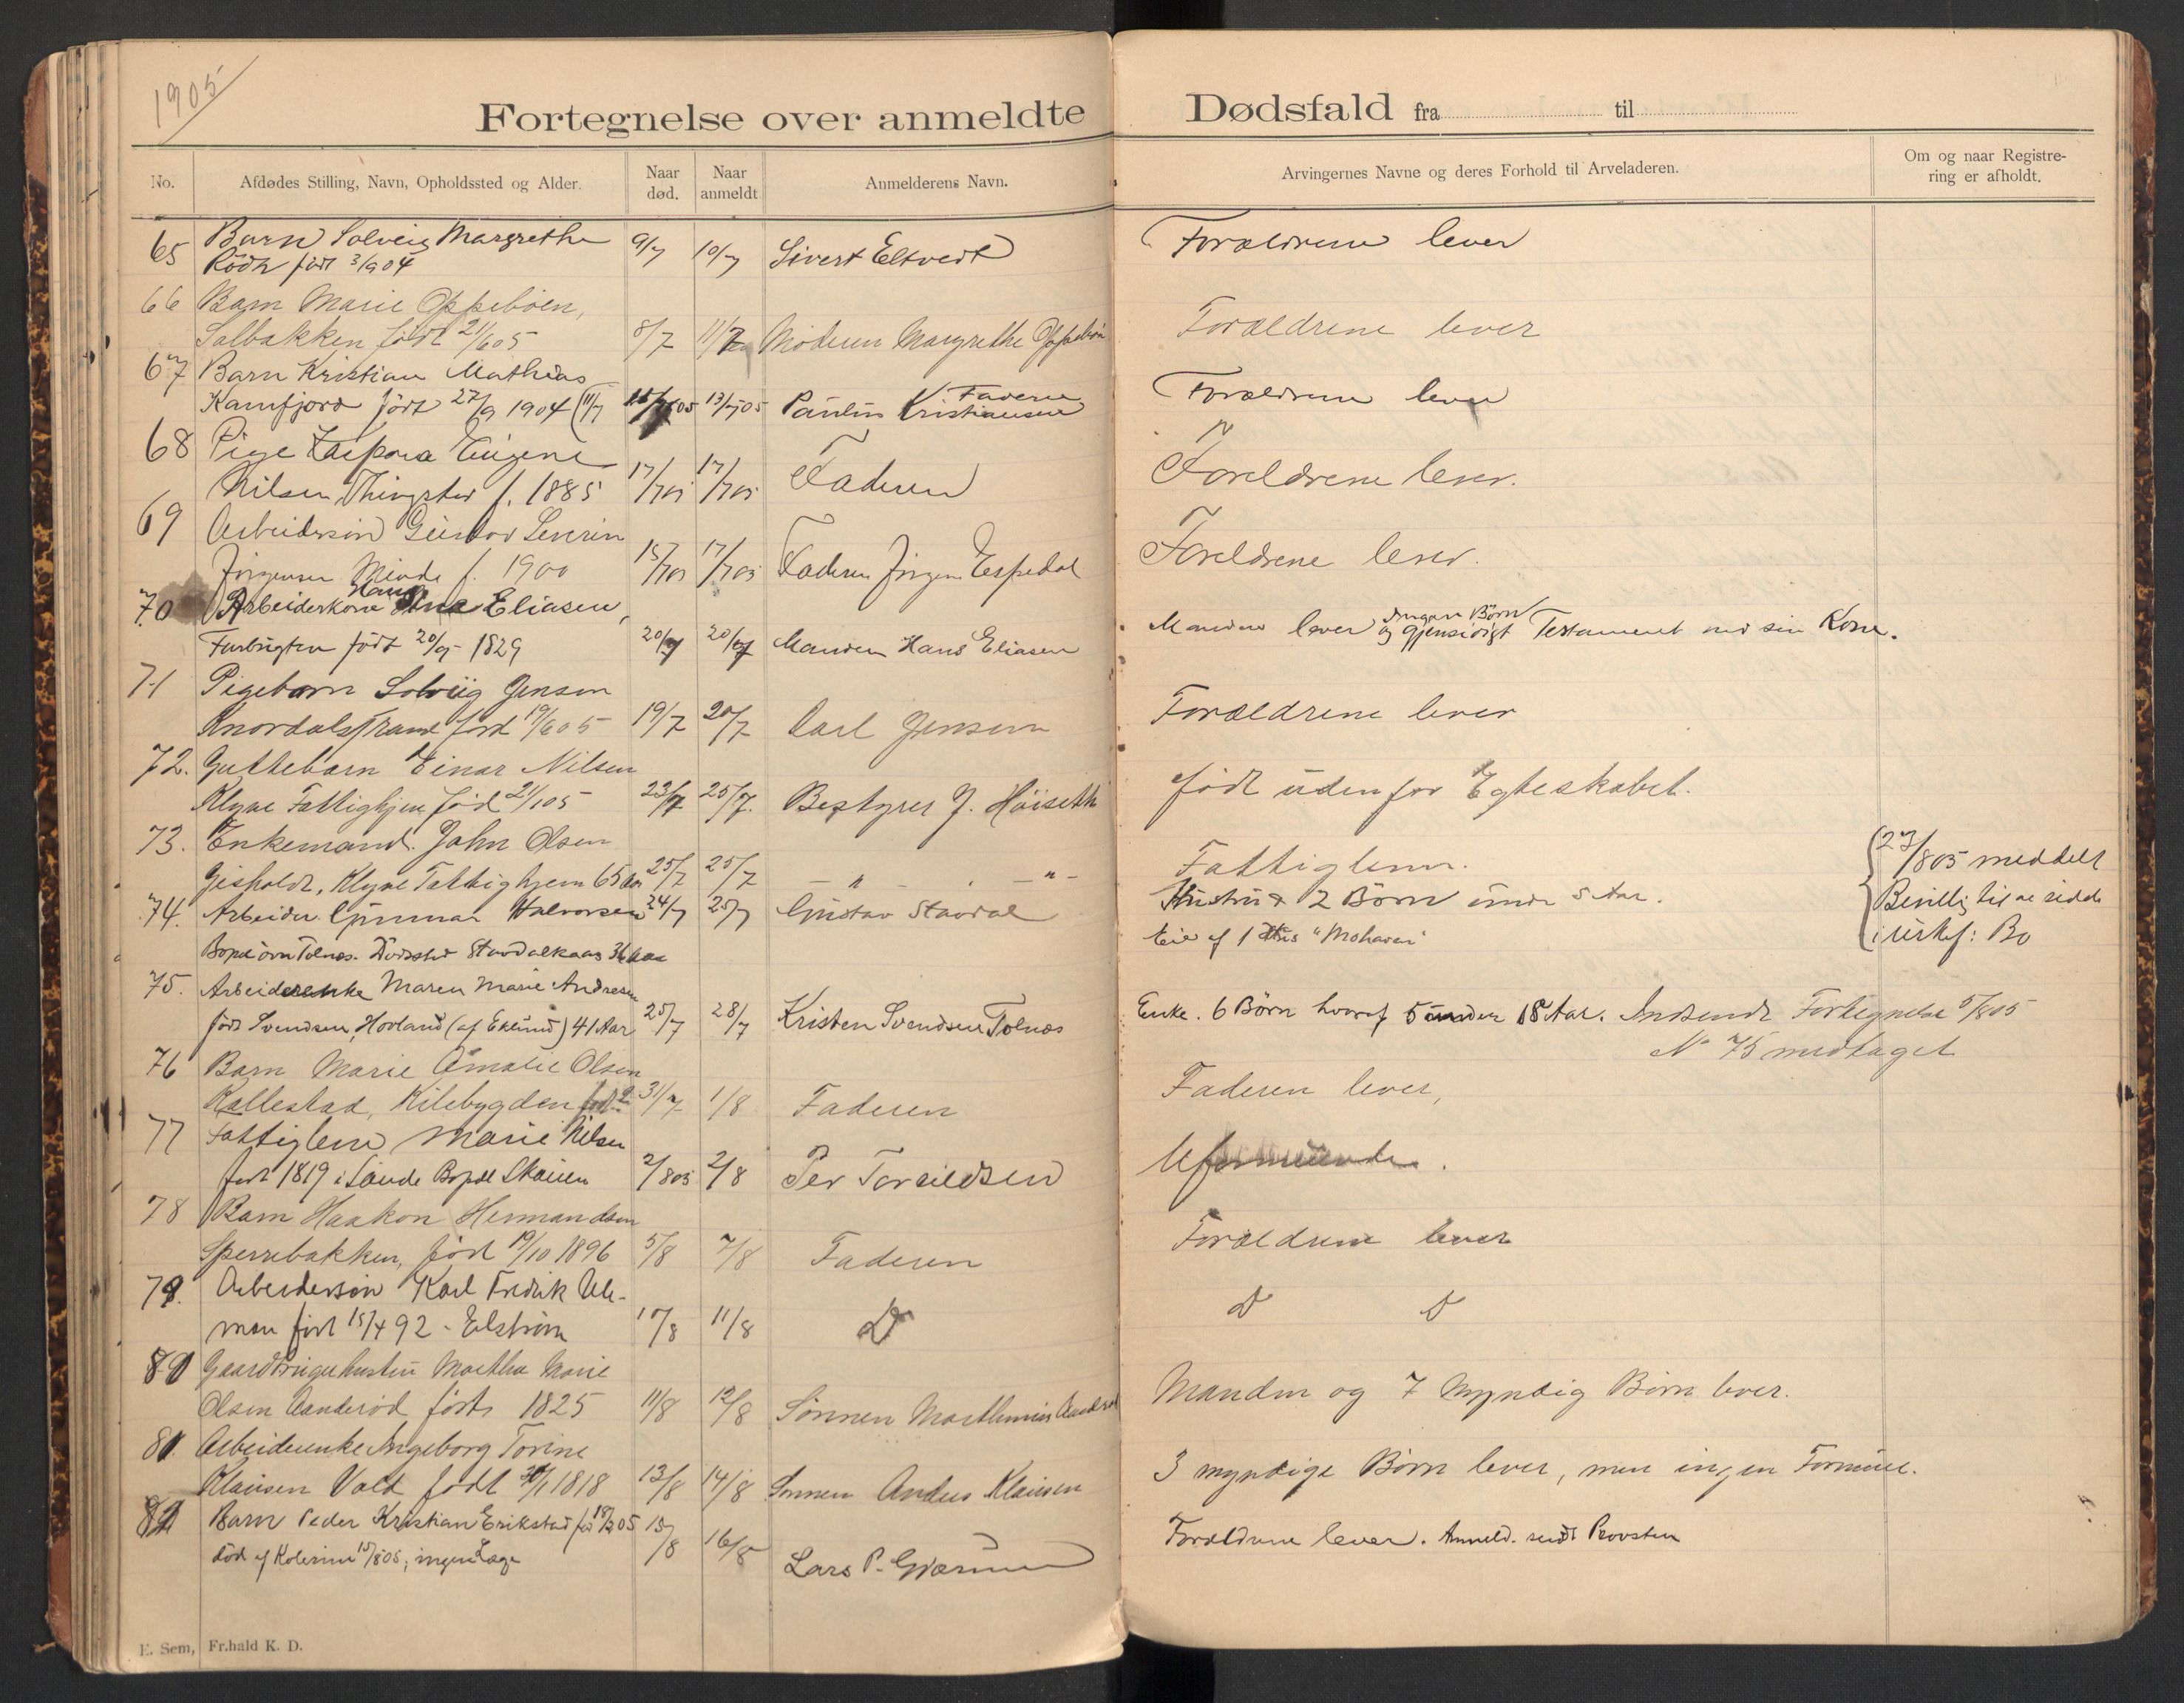 1905
Fortegnelse over anmeldte Dødsfald fra til
No.
Afdødes Stilling, Navn, Opholdssted og Alder.
Naar død.
Naar anmeldt
Anmelderens Navn.
Arvingernes Navne og deres Forhold til Arveladeren.
Om og naar Registrering er afholdt.
65 Barn Solveig Margrethe 9/7 10/7 Sivert Eltvedt Forældrene lever
født 3/904
66 Barn Marie Oppebøen,
Solbakken født 21/605 8/7 11/7 Moderen Margrethe Oppebøn Forældrene lever
67 Barn Kristian Mathias
Kamfjord født 27/9 1904 (11/7 13/705 Paulin Kristiansen Faderen Forældrene lever
68 Pige Kaspara Eugene
Nilsen f. 1885 17/705 17/705 Faderen Foreldrene lever.
69 Arbeidersøn Gustav Severin
Jørgensen Minde f. 1900 15/705 17/705 Faderen Jørgen Espedal Foreldrene lever.
70 Arbeiderkone Eliasen,
født 20/9 1829 20/7 20/7 Manden Hans Eliasen Manden lever og gjensidigt Testament med sin Kone.
Ingen Børn
71 Pigebarn Solveig Jensen
født 19/605 19/7 20/7 Carl Jensen Forældrene lever
72. Guttebarn Einar Nilsen
Klyve Fattighjem fød 21/105 23/7 25/7. Bestyrer J. Høiseth født udenfor Egteskabet.
73. Enkemand John Olsen
Gisholdt, Klyve Fattighjem 65 Aar 25/7 25/7 — " — — " — Fattiglem.
74. Arbeider Gunnar Halvorsen 24/7 25/7 Gustav Stavdal Hustru & 2 Børn under 5 Aar.
Bopæl øvre Tolnes. Dødssted Stavdalkaas 36 Aar Eier af 1 Hus "Mohaven"
23/805 meddelt
Bevillg til at sidde
i uskf: Bo
75. Arbeiderenke Maren Marie Andresen
født Svendsen, Hovland (af Eklund) 41 Aar 25/7 28/7 Kristen Svendsen Tolnæs Enke. 6 Børn hvoraf 5 under 18 Aar. Indsendt Fortegnelse 5/805
No 75 medtaget
76 Barn Marie Amalie Olsen
Kallestad, Kilebygden 31/7 1/8 Faderen Faderen lever,
77 Fattiglem Marie Nilsen
født 1819 i Sande Bopæl Skauen 2/805 2/8 Per Toreildsen
78 Barn Haakon Hermandsen
Sperrebakken, født 19/10 1896 5/8 7/8 Faderen Forældrene lever
79. Arbeidersøn Karl Fredrik Ul-
man født 15/4 92 - Elstrøm 10/8 11/8 D D D
80 Gaardbrugerhustru Marthe Marie
Olsen Aanderød født 1825 11/8 12/8 Sønnen Marthinius Manden og 7 Myndig Børn lever.
81. Arbeiderenke Ingeborg Torine
Klausen Vold født 1818 13/8 14/8 Sønnen Anders Klausen 3 myndige Børn lever, men ingen Formue.
82 Barn Peder Kristian Erikstad 05 15/8 16/8 Lars P. Forældrene lever. Anmeld. sendt Provsten
død af Kolerine 15/805, ingen Læge
E. Sem, Fr.hald K. D.